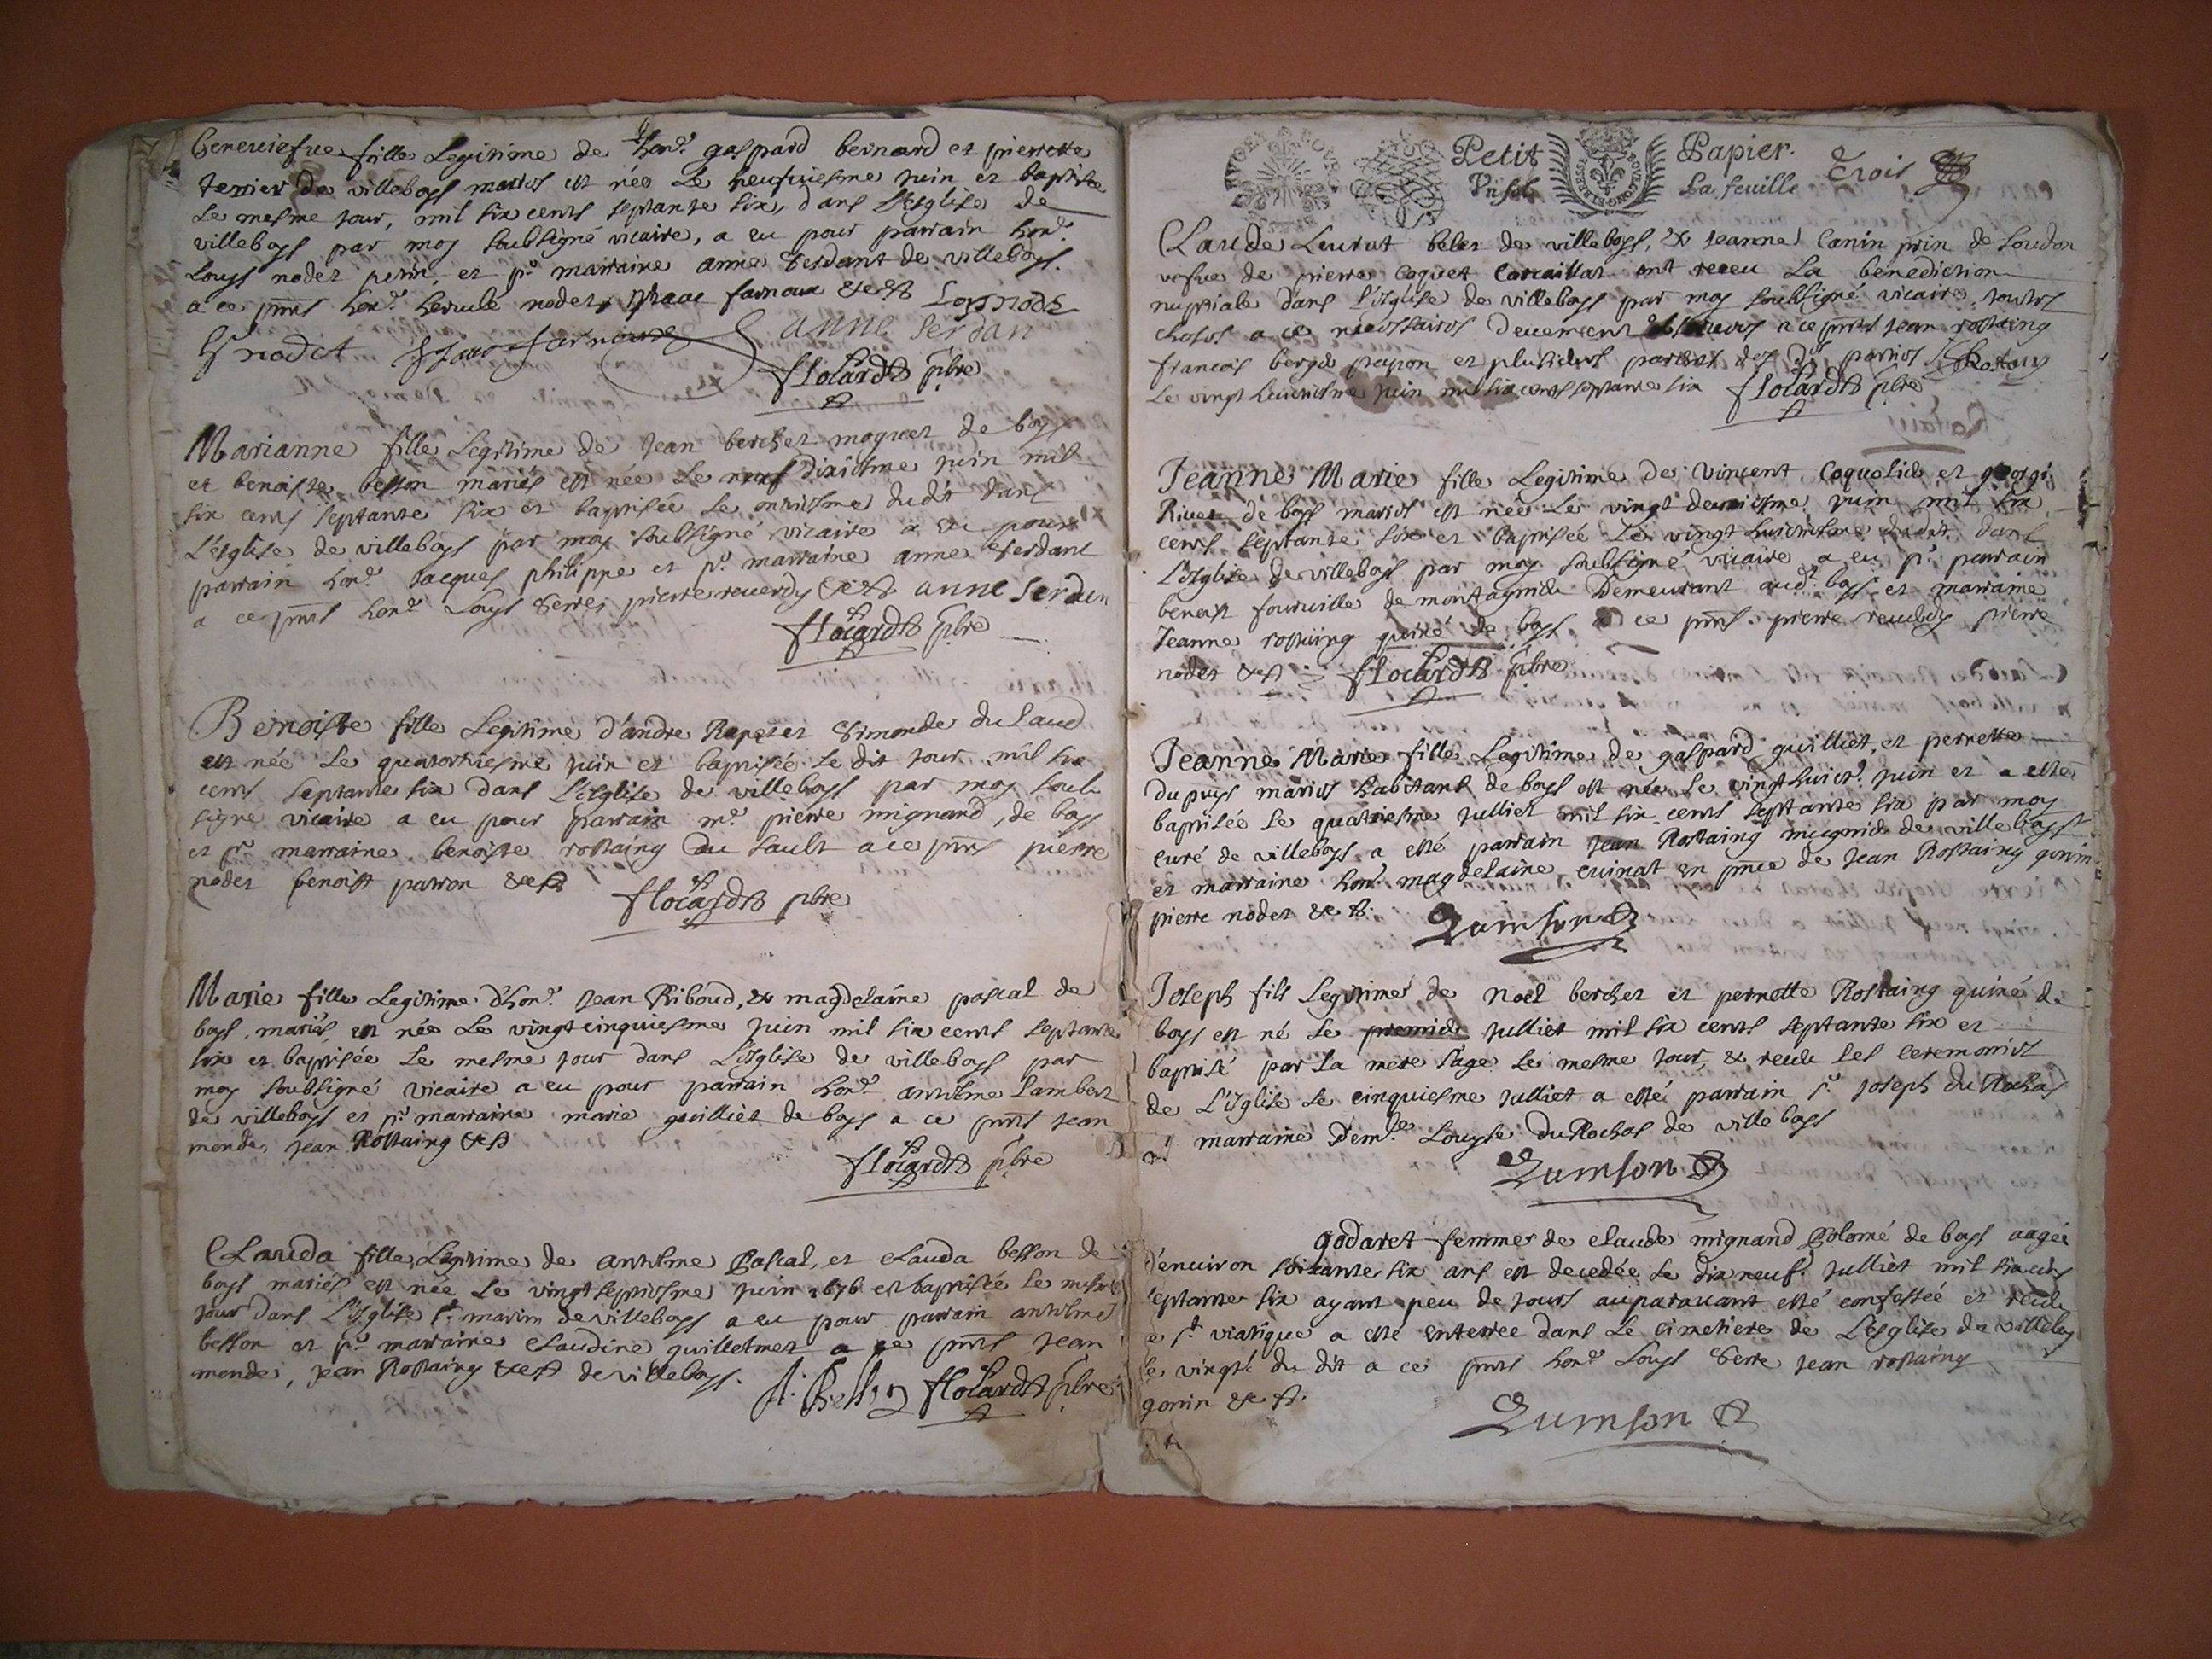 Geneuiefue fille Legitime de hon.e gaspard bernard et pierrette
terrier de villeboys mariés est née Le neufuiesme juin et baptisée
Le mesme jour, mil six cents septante six, dans L'esglise de
villeboys par moy soubsigné vicaire, a eu pour parrain hon.e
Louys nodet petin, et p.r marraine anne Serdant de villeboys.
a ce pnts hon.e hercule nodet, ysaac farnoux &c Loys nodet
h nodet ysaac farnoux anne serdan
flocard pbre
Marianne fille Legitime de Jean berchet moguet de boys
et benoiste besson mariés est née Le dixiesme juin mil
six cents septante six et baptisée Le onziesme dudit dans
L'esglise de villeboys par moy soubsigné vicaire a eu pour
parrain hon.e Jacques philippe et p.r marraine anne Serdant
a ce pnts hon.e Louys Serre, pierre reuerdy &c anne Serdan
flocard pbre
Benoiste fille Legitime d'andre Rapet et Simonde du Saud
est née Le quatorziesme juin et baptisée Le dit jour mil six
cents septante six dans L'esglise de villeboys par moy soub
signe vicaire a eu pour parrain m.e pierre mignand, de boys
et p.r marraine benoiste rostaing du Sault a ce pnts pierre
nodet benoist patron &c
flocard pbre
Marie fille Legitime d'hon.e Jean Riboud, & magdelaine pascal de
boys mariés, est née Le vingt cinquiesme juin mil six cents septante
six et baptisée Le mesme jour dans L'esglise de villeboys par
moy soubsigné vicaire a eu pour parrain hon.e antelme Lambert
de villeboys et p.r marraine marie guilliet de boys a ce pnts jean
monde, jean Rostaing &c
flocard pbre
Clauda fille Legitime de antelme Pascal, et Clauda besson de
boys mariés est née Le vingt septiesme juin 1676 et baptisée Le mesme
jour dans L'esglise s.t martin de villeboys a eu pour parrain antelme
besson et p.r marraine Claudine guillelmet a ce pnts jean
monde, jean Rostaing &c de villeboys.
A. Besson flocard pbre
Petit Papier. Trois
Vn sol La feuille
Claude Leurat belet de villeboys, & jeanne Canin prin de Soudon
vefue de pierre Coquet Carcaillat ont receu La benediction
nuptiale dans L'esglise de villeboys par moy soubsigné vicaire, toutes
choses a ce necessaires deuement obseruees a ce pnts jean rostaing
francois berger papon et plusieurs parents des d. parties
Le vingt huictiesme juin mil six cents septante six flocard pbre
Jeanne Marie fille Legitime de Vincent Coquelide et
Riuet de boys mariés est née Le vingt juin mil six
cents septante six et baptisée Le vingt huictiesme dudit, dans
L'esglise de villeboys par moy soubsigné vicaire a eu p.r parrain
benoist fouruille de montagnieu Demeurant aud.t boys et marraine
Jeanne rostaing quiné de boys. a ce pnts. pierre reuerdy pierre
nodet &c flocard pbre
Jeanne Marie fille Legitime de gaspard guilliet, et pernette
Dupuys mariés habitans de boys est née Le vingt huict.e juin et a esté
baptisée Le quatriesme juilliet mil six cents septante six par moy
curé de villeboys a esté parrain jean Rostaing de villeboys
et marraine hon.e magdelaine cuinat en pnce de Jean Rostaing gonin
pierre nodet &c.
Joseph fils Legitime de Noel berchet et pernette Rostaing quiné de
boys est né Le premier juilliet mil six cents septante six et
baptisé par La mere sage Le mesme jour, & receu les Ceremonies
de L'esglise Le cinquiesme juilliet a esté parrain s.r joseph du Rochas
et marraine Dem.lle Louyse DuRochas de villeboys
godaret femme de Claude mignand Polomé de boys aagée
d'enuiron soixante six ans est decedée Le dix neuf.e juilliet mil six cents
septante six ayant peu de jours auparauant esté confessée et receu
le s.t viatique a esté enterrée dans Le cimetiere de L'esglise de villeboys
le vingt.e du dit a ce pnts hon.e Louys Serre jean rostaing
gonin &c.